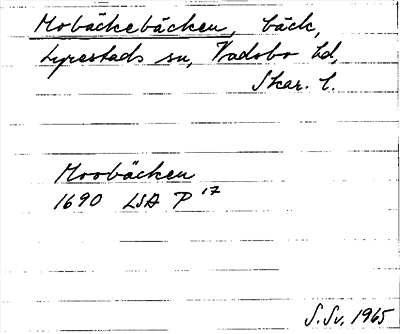 Mobäckebäcken, bäck,
Lyrestads sn, Vadsbo hd,
Skar. l.
Moobäcken
1690 LSA P 17
S. Sv. 1965